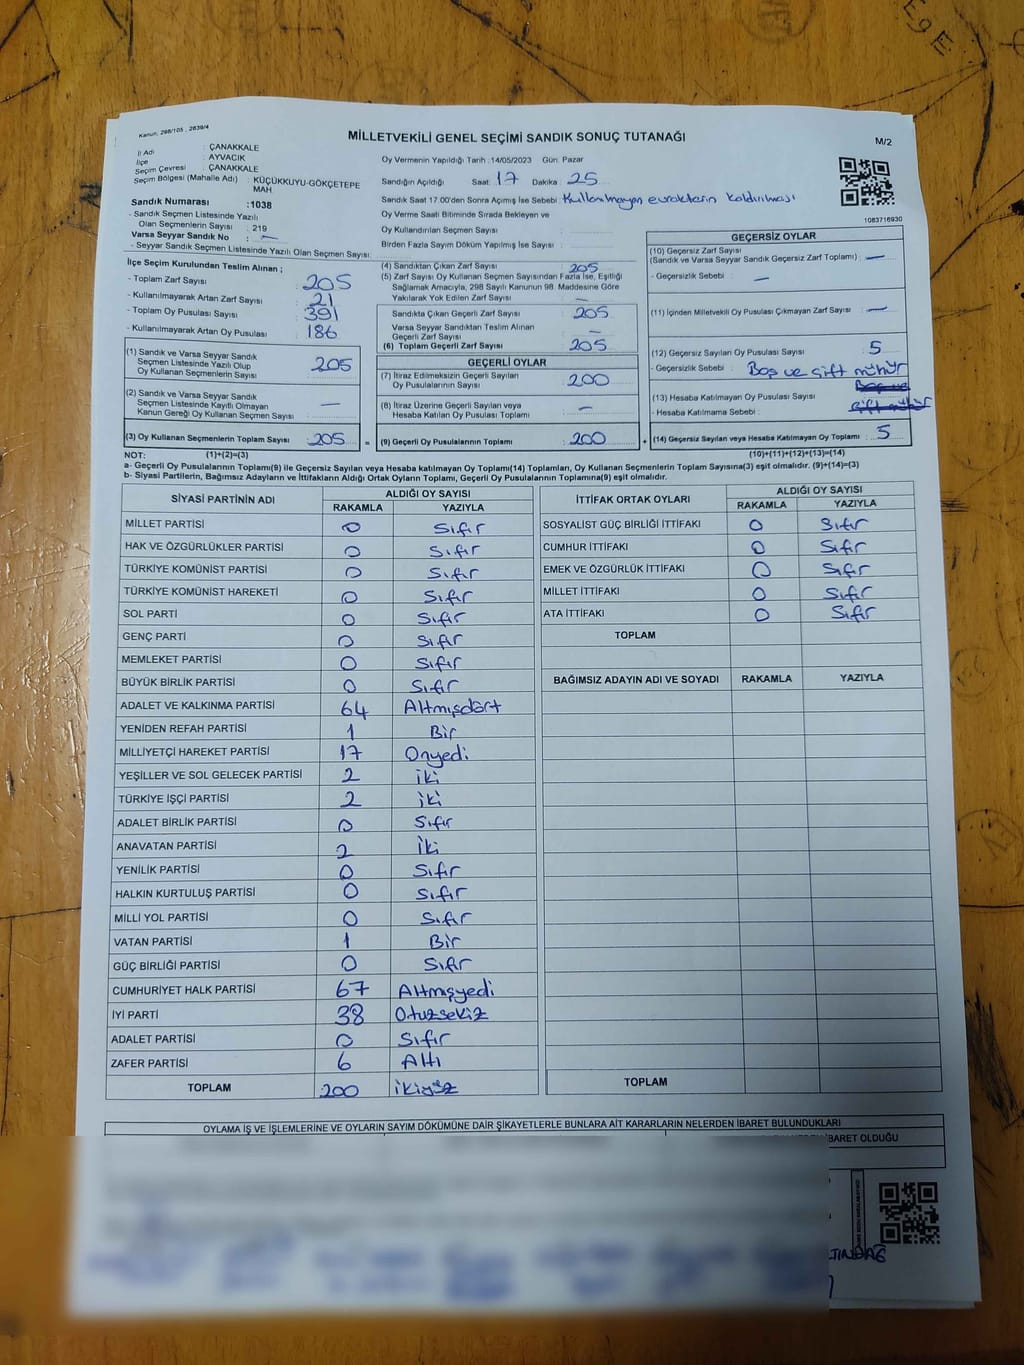 EgE
Kanun, 298/105 , 2839/4
MİLLETVEKİLİ GENEL SEÇİMİ SANDIK SONUÇ TUTANAĞI
M/2
İl Adı : ÇANAKKALE
İlçe : AYVACIK
Seçim Çevresi : ÇANAKKALE
Seçim Bölgesi (Mahalle Adı) : KÜÇÜKKUYU-GÖKÇETEPE MAH
Sandık Numarası :1038
- Sandık Seçmen Listesinde Yazılı
Olan Seçmenlerin Sayısı : 219
Varsa Seyyar Sandık No : —
- Seyyar Sandık Seçmen Listesinde Yazılı Olan Seçmen Sayısı:
Oy Vermenin Yapıldığı Tarih :14/05/2023 Gün: Pazar
Sandığın Açıldığı Saat: 17 Dakika: 25
Sandık Saat 17.00'den Sonra Açımış İse Sebebi : Kullanılmayan evrakların kaldırılması
Oy Verme Saati Bitiminde Sırada Bekleyen ve
Oy Kullandırılan Seçmen Sayısı :
Birden Fazla Sayım Döküm Yapılmış İse Sayısı :
1083716930
İlçe Seçim Kurulundan Teslim Alınan ;
- Toplam Zarf Sayısı : 205
- Kullanılmayarak Artan Zarf Sayısı : 21
- Toplam Oy Pusulası Sayısı : 391
- Kullanılmayarak Artan Oy Pusulası : 186
(1) Sandık ve Varsa Seyyar Sandık
Seçmen Listesinde Yazılı Olup
Oy Kullanan Seçmenlerin Sayısı : 205
(2) Sandık ve Varsa Seyyar Sandık
Seçmen Listesinde Kayıtlı Olmayan
Kanun Gereği Oy Kullanan Seçmen Sayısı : —
(3) Oy Kullanan Seçmenlerin Toplam Sayısı : 205 =
(4) Sandıktan Çıkan Zarf Sayısı : 205
(5) Zarf Sayısı Oy Kullanan Seçmen Sayısından Fazla İse, Eşitliği
Sağlamak Amacıyla, 298 Sayılı Kanunun 98. Maddesine Göre
Yakılarak Yok Edilen Zarf Sayısı : —
Sandıkta Çıkan Geçerli Zarf Sayısı : 205
Varsa Seyyar Sandıktan Teslim Alınan
Geçerli Zarf Sayısı : —
(6) Toplam Geçerli Zarf Sayısı : 205
GEÇERLİ OYLAR
(7) İtiraz Edilmeksizin Geçerli Sayılan
Oy Pusulalarının Sayısı : 200
(8) İtiraz Üzerine Geçerli Sayılan veya
Hesaba Katılan Oy Pusulası Toplamı : —
(9) Geçerli Oy Pusulalarının Toplamı : 200 +
GEÇERSİZ OYLAR
(10) Geçersiz Zarf Sayısı
(Sandık ve Varsa Seyyar Sandık Zarf Toplamı) : —
- Geçersizlik Sebebi : —
(11) İçinden Milletvekili Oy Pusulası Çıkmayan Zarf Sayısı : —
(12) Geçersiz Sayılan Oy Pusulası Sayısı : 5
- Geçersizlik Sebebi : Boş ve çift mühür
Boş ve
(13) Hesaba Katılmayan Oy Pusulası Sayısı :
- Hesaba Katılmama Sebebi : çift mühür
(14) Geçersiz Sayılan veya Hesaba Katılmayan Oy Toplamı : 5
NOT: (1)+(2)=(3) (10)+(11)+(12)+(13)=(14)
a- Geçerli Oy Pusulalarının Toplamı(9) ile Geçersiz Sayılan veya Hesaba katılmayan Oy Toplamı(14) Toplamları, Oy Kullanan Seçmenlerin Toplam Sayısına(3) eşit olmalıdır. (9)+(14)=(3)
b- Siyasi Partilerin, Bağımsız Adayların ve İttifakların Aldığı Ortak Oyların Toplamı, Geçerli Oy Pusulalarının Toplamına(9) eşit olmalıdır.
SİYASİ PARTİNİN ADI ALDIĞI OY SAYISI
RAKAMLA YAZIYLA
MİLLET PARTİSİ 0 Sıfır
HAK VE ÖZGÜRLÜKLER PARTİSİ 0 Sıfır
TÜRKİYE KOMÜNİST PARTİSİ 0 Sıfır
TÜRKİYE KOMÜNİST HAREKETİ 0 Sıfır
SOL PARTİ 0 Sıfır
GENÇ PARTİ 0 Sıfır
MEMLEKET PARTİSİ 0 Sıfır
BÜYÜK BİRLİK PARTİSİ 0 Sıfır
ADALET VE KALKINMA PARTİSİ 64 Altmışdört
YENİDEN REFAH PARTİSİ 1 Bir
MİLLİYETÇİ HAREKET PARTİSİ 17 Onyedi
YEŞİLLER VE SOL GELECEK PARTİSİ 2 iki
TÜRKİYE İŞÇİ PARTİSİ 2 iki
ADALET BİRLİK PARTİSİ 0 Sıfır
ANAVATAN PARTİSİ 2 İki
YENİLİK PARTİSİ 0 Sıfır
HALKIN KURTULUŞ PARTİSİ 0 Sıfır
MİLLİ YOL PARTİSİ 0 Sıfır
VATAN PARTİSİ 1 Bir
GÜÇ BİRLİĞİ PARTİSİ 0 Sıfır
CUMHURİYET HALK PARTİSİ 67 Altmışyedi
İYİ PARTİ 38 Otuzsekiz
ADALET PARTİSİ 0 Sıfır
ZAFER PARTİSİ 6 Altı
TOPLAM 200 İkiyüz
İTTİFAK ORTAK OYLARI ALDIĞI OY SAYISI
RAKAMLA YAZIYLA
SOSYALİST GÜÇ BİRLİĞİ İTTİFAKI 0 Sıfır
CUMHUR İTTİFAKI 0 Sıfır
EMEK VE ÖZGÜRLÜK İTTİFAKI 0 Sıfır
MİLLET İTTİFAKI 0 Sıfır
ATA İTTİFAKI 0 Sıfır
TOPLAM
BAĞIMSIZ ADAYIN ADI VE SOYADI RAKAMLA YAZIYLA
TOPLAM
OYLAMA İŞ VE İŞLEMLERİNE VE OYLARIN SAYIM DÖKÜMÜNE DAİR ŞİKAYETLERLE BUNLARA AİT KARARLARIN NELERDEN İBARET BULUNDUKLARI
İBARET OLDUĞU